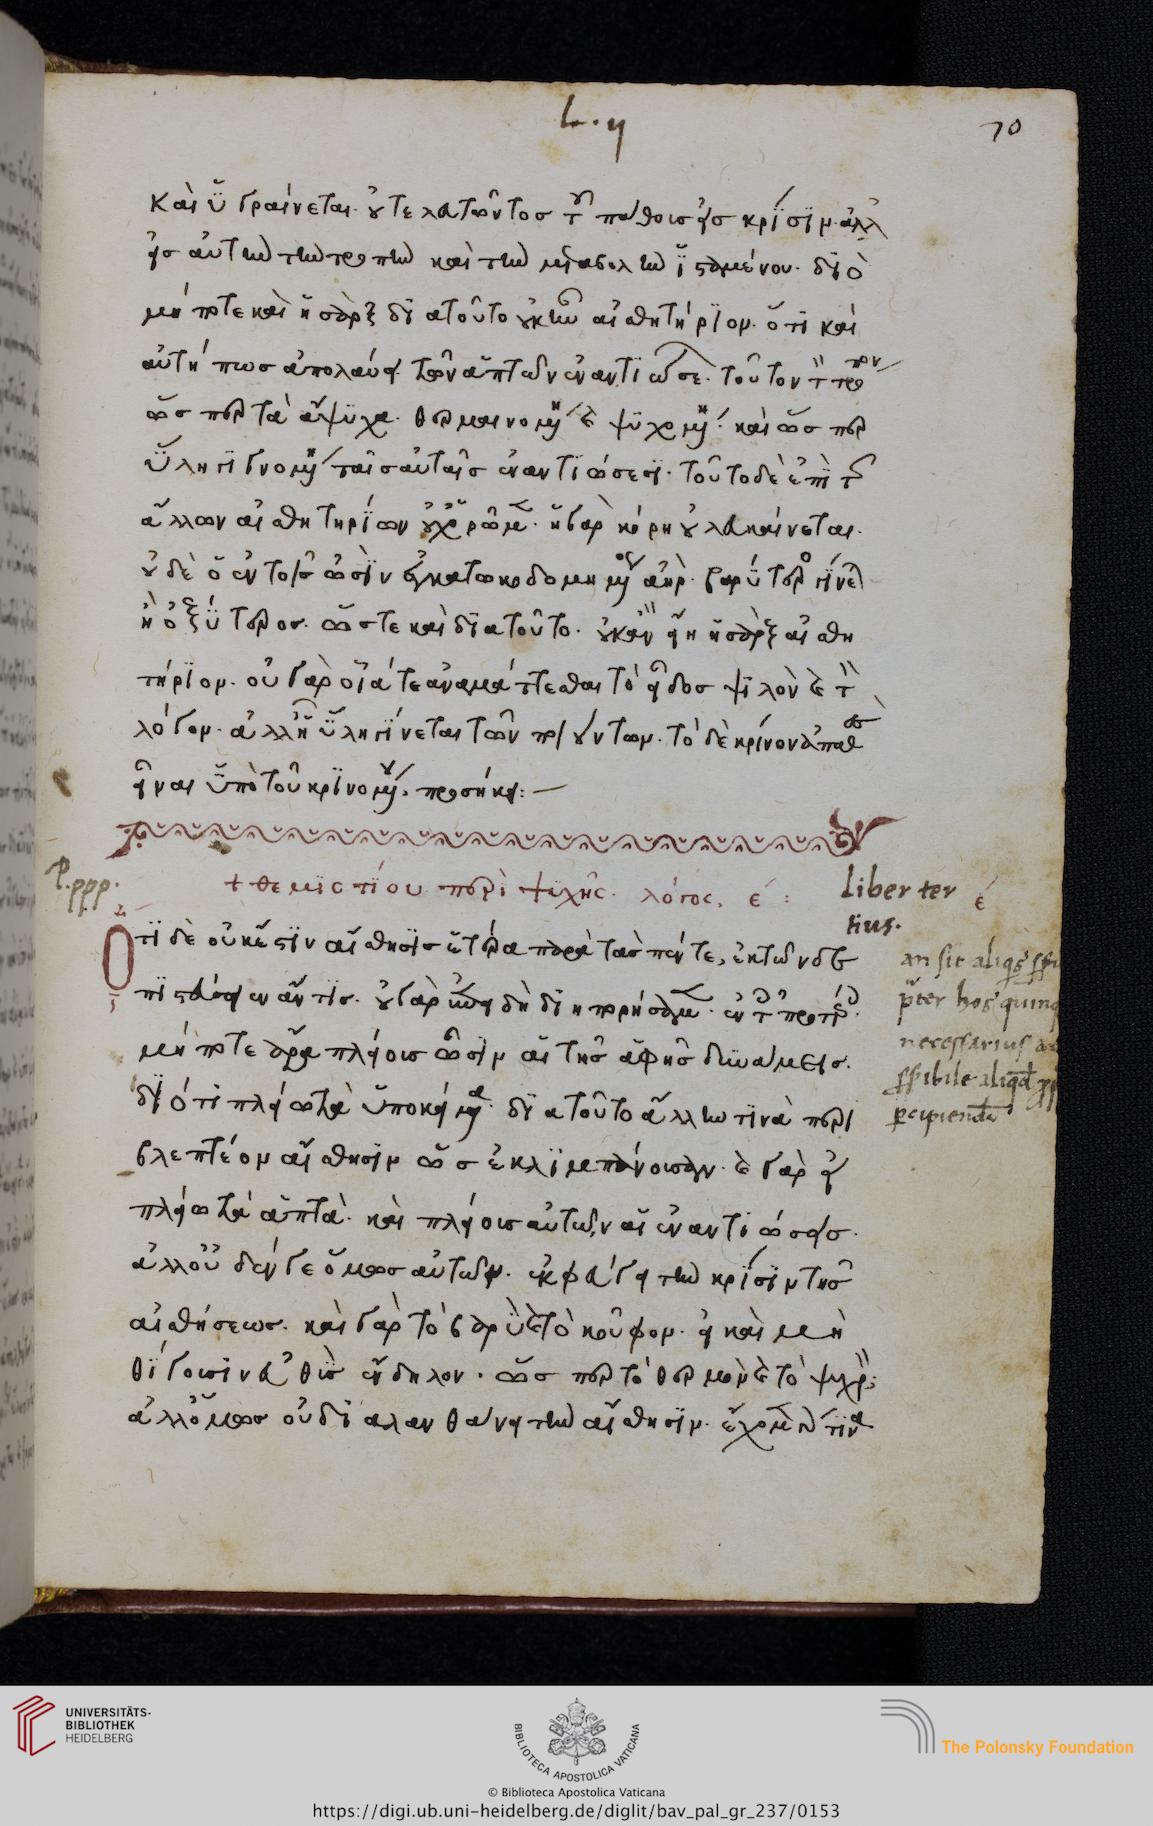 L. y
70
καὶ ὑγραίνεται. οὐ τελευτῶντος τοῦ πάθους εἰς κρίσιν. ἀλλ'
εἰς αὐτὴν τὴν τροπὴν καὶ τὴν μεταβολὴν ἱσταμένου. διὸ
μή ποτε καὶ ἡ σὰρξ διὰ τοῦτο οὐκ ἦν αἰσθητήριον. ὅτι καὶ
αὐτή πως ἀπολαύει τῶν ἁπτῶν ἐναντιώσε. τοῦτον τὸν τρόπον
ὥσπερ τὰ ἄψυχα. θερμαινομεν καὶ ψυχομεν. καὶ ὥσπερ
ὕλη γιγνομεν ταῖς αὐταῖς ἐναντιώσεσι. τοῦτο δὲ ἐπὶ τῶν
ἄλλων αἰσθητηρίων οὐχ ὁρῶμεν. ἡ γὰρ κόρη οὐ λευκαίνεται.
οὐδὲ ὁ ἐν τοῖς ὠσὶν ἐγκατωκοδομημένος ἀὴρ. βαρύτερος γίνεται
ἢ ὀξύτερος. ὥστε καὶ διὰ τοῦτο. οὐκ ἂν εἴη ἡ σὰρξ αἰσθη
τήριον. οὐ γὰρ οἵα τε ἀναμάττεσθαι τὸ εἶδος ψιλὸν καὶ τὸν
λόγον. ἀλλ' ἢ ὕλη γίνεται τῶν ποιούντων. τὸ δὲ κρῖνον ἀπαθὲς
εἶναι ὑπὸ τοῦ κρινομένου. προσήκει:—
+ θεμιστίου περὶ ψυχῆς. λόγος, ε΄:
liber ter
tius.
ε΄
P.ppp.
Ὅτι δὲ οὐκ ἔστιν αἴσθησις ἑτέρα παρὰ τὰς πέντε, ἐκ τῶνδε
πιστεύσειεν ἄν τις. οὐ γὰρ
μή ποτε ἄρα πλείους ὦσιν αἱ τῆς ἁφῆς δυνάμεις.
διότι πλείω τὰ ὑποκείμενα. διὰ τοῦτο ἄλλην τινὰ περι
βλεπτέον αἴσθησιν ὡς ἐκλιμπάνουσαν. καὶ γὰρ εἰ
πλείω τὰ ἁπτὰ. καὶ πλείους αὐτῶν αἱ ἐναντιώσεις.
ἀλλ' οὐδέν γε ὅμως αὐτῶν. ἐκφεύγει τὴν κρίσιν τῆς
αἰσθήσεως. καὶ γὰρ τὸ βαρὺ καὶ τὸ κοῦφον. εἰ καὶ μὴ
θίγουσιν εὐθὺς ἔνδηλον. ὥσπερ τὸ θερμὸν καὶ τὸ ψυχρὸν:
ἀλλ' ὅμως οὐ διαλανθάνει τὴν αἴσθησιν. ἔχομεν τινα
an sit aliqs
pter hos quinq
necessarius
sensibile aliqd
percipiend
UNIVERSITÄTS-
BIBLIOTHEK
HEIDELBERG
BIBLIOTECA APOSTOLICA VATICANA
The Polonsky Foundation
© Biblioteca Apostolica Vaticana
https://digi.ub.uni-heidelberg.de/diglit/bav_pal_gr_237/0153